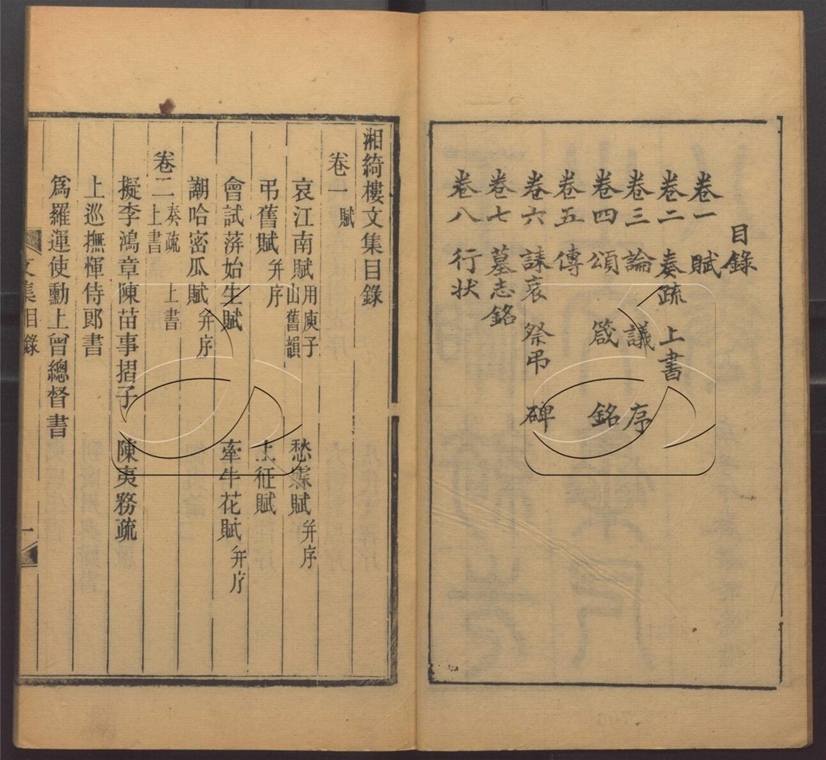 目錄
卷一 賦
卷二 奏疏 上書
卷三 論 議 序
卷四 頌 箴 銘
卷五 傳
卷六 誄哀 祭弔 碑
卷七 墓志銘
卷八 行狀
湘綺樓文集目錄
卷一 賦
哀江南賦用庾子山舊韻 愁霖賦并序
弔舊賦并序 上征賦
會試萍始生賦 牽牛花賦并序
嘲哈密瓜賦并序
卷二 奏疏 上書 上書
擬李鴻章陳苗事摺子 陳夷務疏
上巡撫惲侍郎書
爲羅運使勳上曾總督書
文集目錄 一